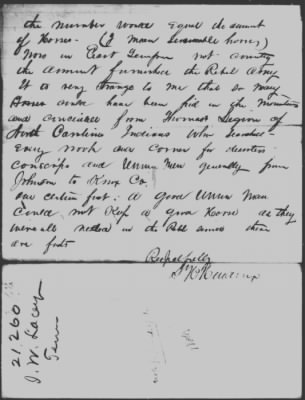 the number would equal the amount
of Horses - (I mean serviceable horses)
Now in East Tennessee not counting
the amount furnished the Rebel Army
It is very strange to me that so many
Horses could have been hid in the mountains
and from Thomas Legion of
North Carolina Indians who searched
Every nook and corner for deserters
conscripts and Union Men generally from
Johnson to Knox Co.
one certain fact: a good Union Man
could not Keep a good Horse as they
were all needed in the Reb army these
are facts
Respectfully
21.260
J. W. Lacey
Tenn